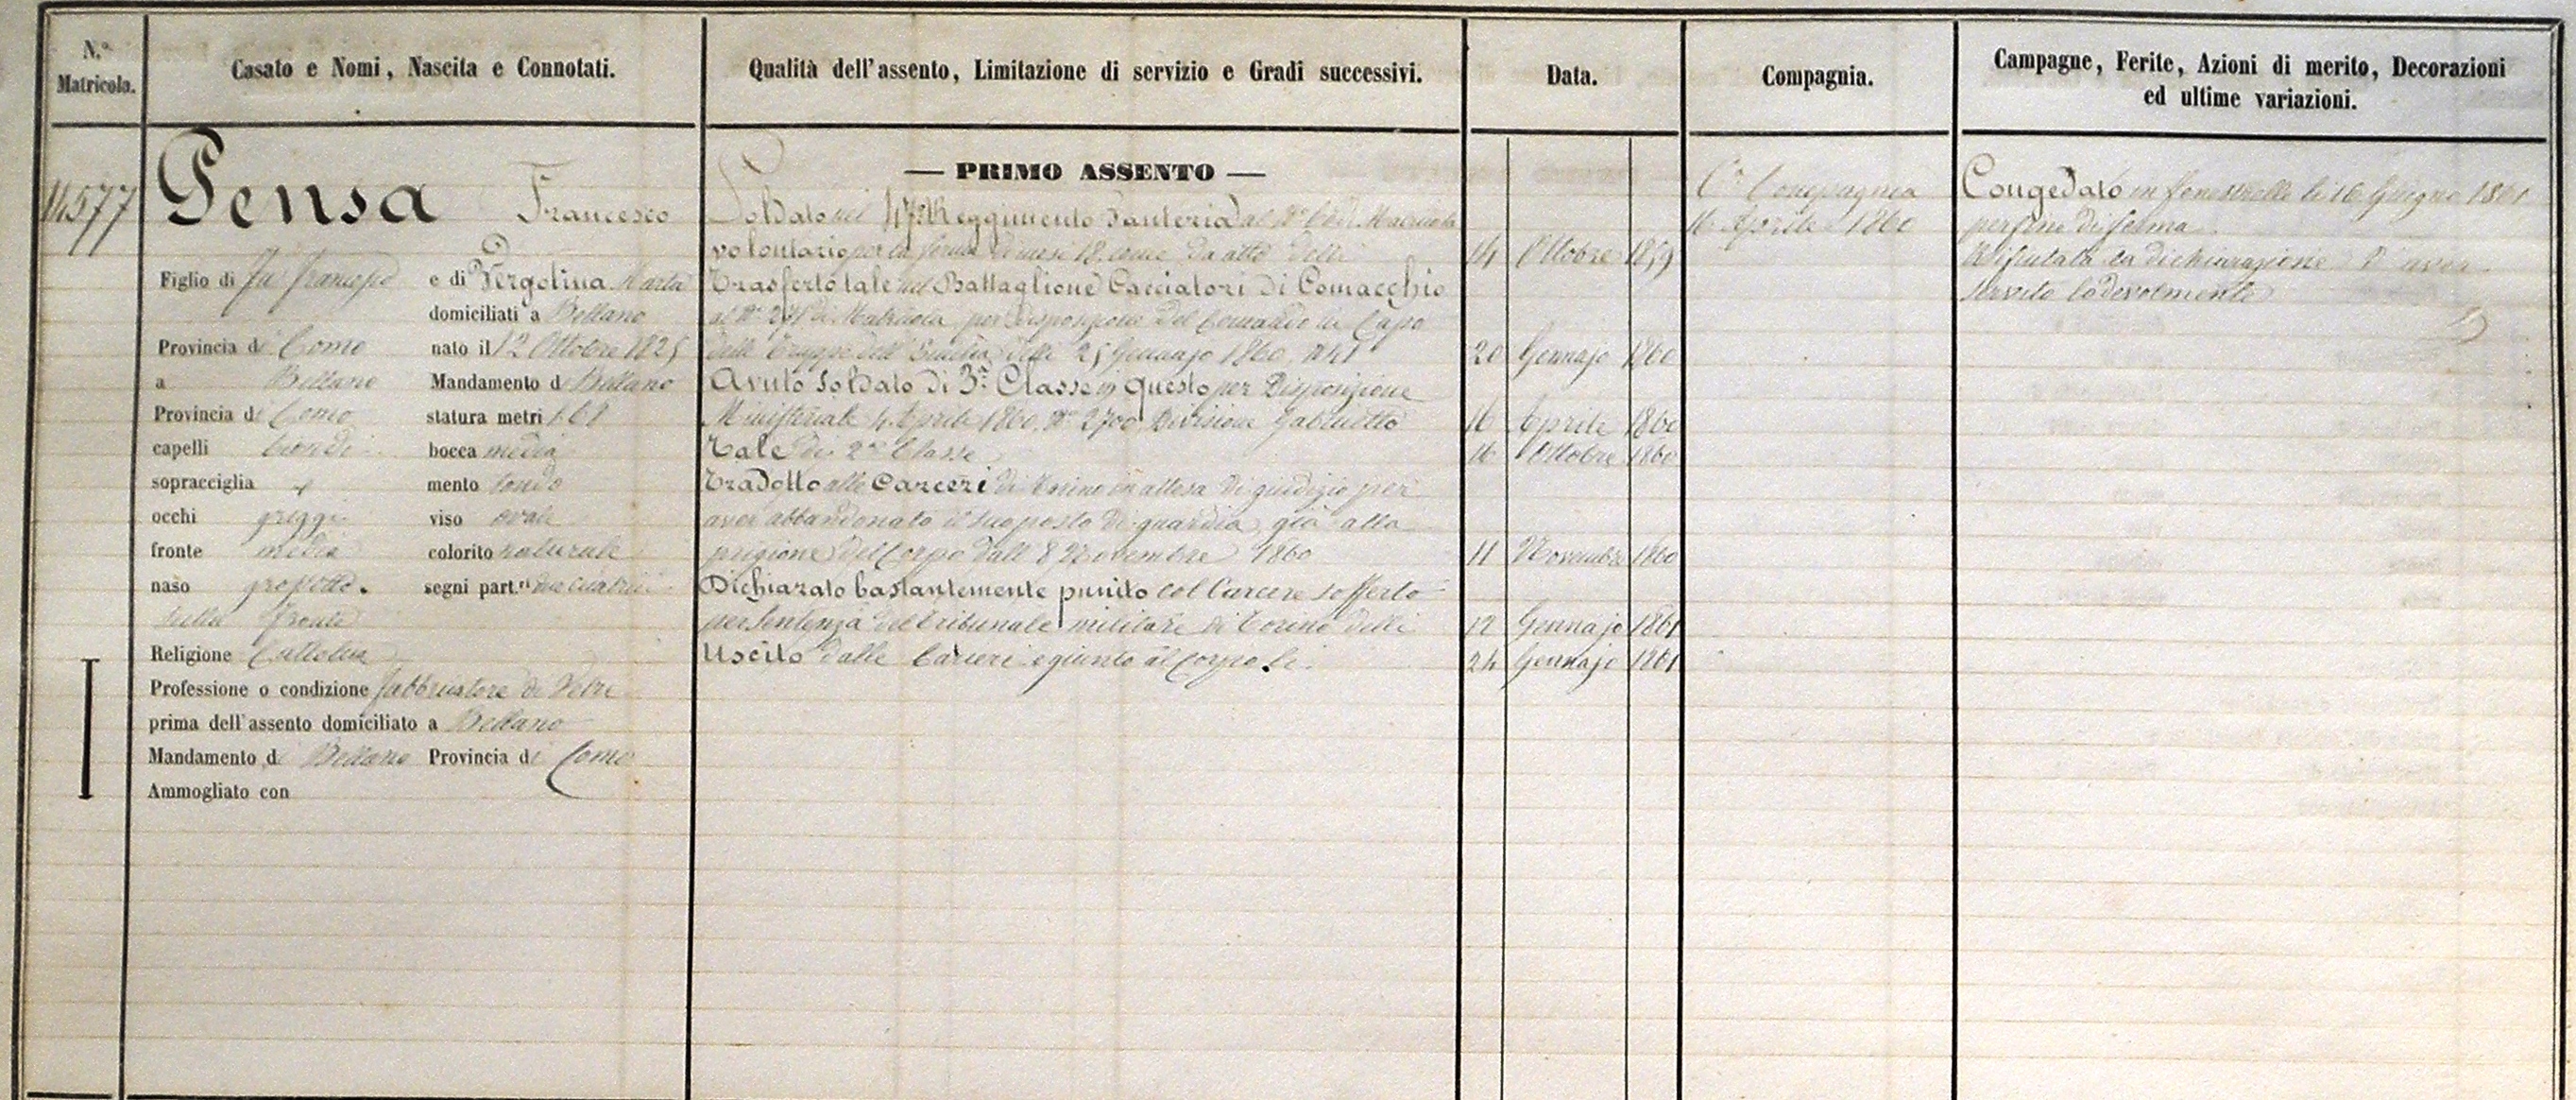 N.º Matricola.
Casato e Nomi, Nascita e Connotati.
Qualità dell'assento, Limitazione di servizio e Gradi successivi.
Data.
Compagnia.
Campagne, Ferite, Azioni di merito, Decorazioni
ed ultime variazioni.
14577
Pensa Francesco
Figlio di fu e di Vergotina Marta
domiciliati a Bellano
Provincia di Como nato il 12 Ottobre 1825
a Bellano Mandamento di Bellano
Provincia di Como statura metri 1.68
capelli biondi bocca media
sopracciglia mento tondo
occhi griggi viso ovale
fronte media colorito naturale
naso grossotto. segni part.ri due cicatrici
sulla fronte
Religione Cattolica
Professione o condizione fabbricatore di
prima dell'assento domiciliato a Bellano
Mandamento di Bellano Provincia di Como
Ammogliato con
— PRIMO ASSENTO —
Soldato nel 47º Reggimento Fanteria al Nº Matricola
volontario per la ferma di mesi 18 come da atto delli 14 Ottobre 1859
Trasferto tale nel Battaglione Cacciatori di Comacchio
al Nº di Matricola per disposizione del Comando in Capo
delle Truppe dell'Emilia delle 25 Gennajo 1860 20 Gennajo 1860
Avuto Soldato di 3ª Classe in questo per Disposizione
Ministeriale 4 Aprile 1860 Nº 2700 Divisione Gabinetto 16 Aprile 1860
Tale di 2ª Classe 16 Ottobre 1860
Tradotto alle Carceri di Torino in attesa di giudizio per
aver abbandonato il suo posto di guardia, già alla
prigione del Corpo dall' 8 Novembre 1860 11 Novembre 1860
Dichiarato bastantemente punito col Carcere sofferto
per sentenza del tribunale militare di Torino delli 12 Gennajo 1861
Uscito dalle Carceri e giunto al Corpo li 24 Gennajo 1861
Compagnia
16 Aprile 1860
Congedato in Fenestrelle li 16 Giugno 1861
per fine di ferma
Rifiutata la dichiarazione d'aver
servito lodevolmente